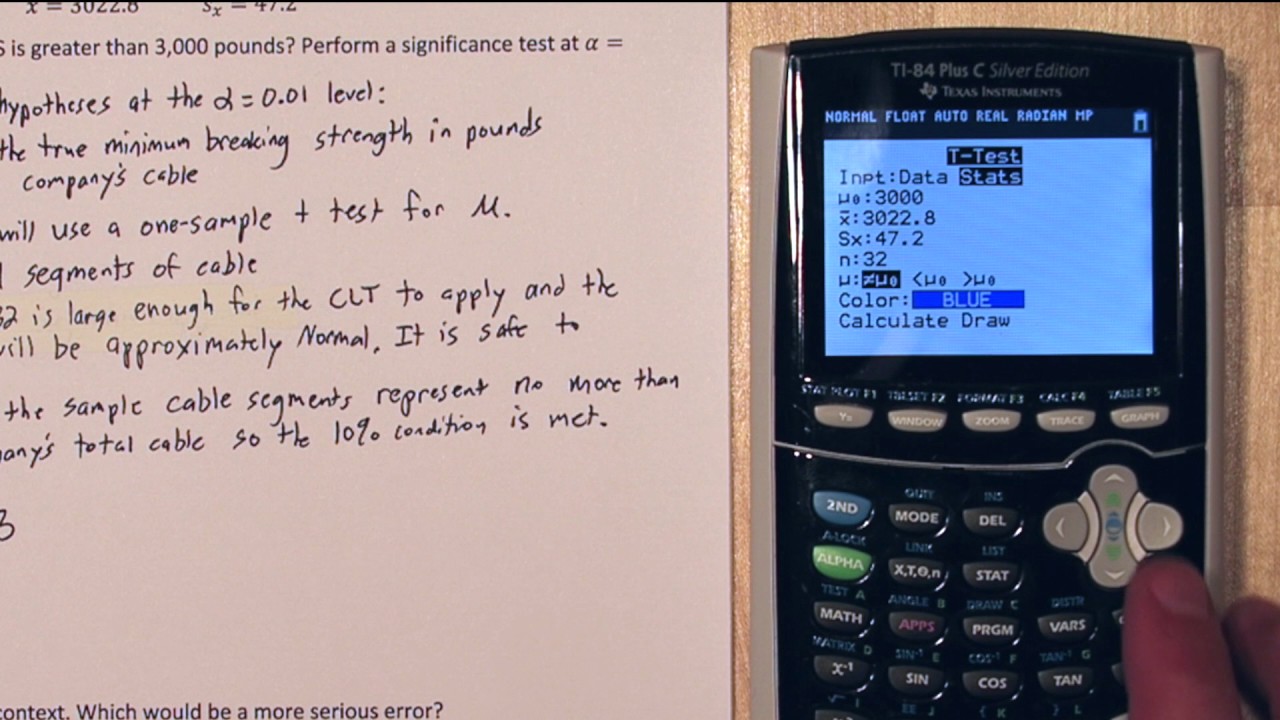 x̄ = 3022.8 Sx = 47.2
S is greater than 3,000 pounds? Perform a significance test at α =
hypotheses at the α = 0.01 level:
the true minimum breaking strength in pounds
company's cable
will use a one-sample t test for μ.
segments of cable
32 is large enough for the CLT to apply and the
will be approximately Normal. It is safe to
the sample cable segments represent no more than
pany's total cable so the 10% condition is met.
3
context. Which would be a more serious error?
TI-84 Plus C Silver Edition
TEXAS INSTRUMENTS
NORMAL FLOAT AUTO REAL RADIAN MP
T-Test
Inpt:Data Stats
μ₀:3000
x̄:3022.8
Sx:47.2
n:32
μ:≠μ₀ <μ₀ >μ₀
Color: BLUE
Calculate Draw
STAT PLOT F1 TBLSET F2 FORMAT F3 CALC F4 TABLE F5
Y= WINDOW ZOOM TRACE GRAPH
QUIT INS
2ND MODE DEL
A-LOCK LINK LIST
ALPHA X,T,θ,n STAT
TEST A ANGLE B DRAW C DISTR
MATH APPS PRGM VARS
MATRIX D SIN⁻¹ E COS⁻¹ F TAN⁻¹ G
x⁻¹ SIN COS TAN